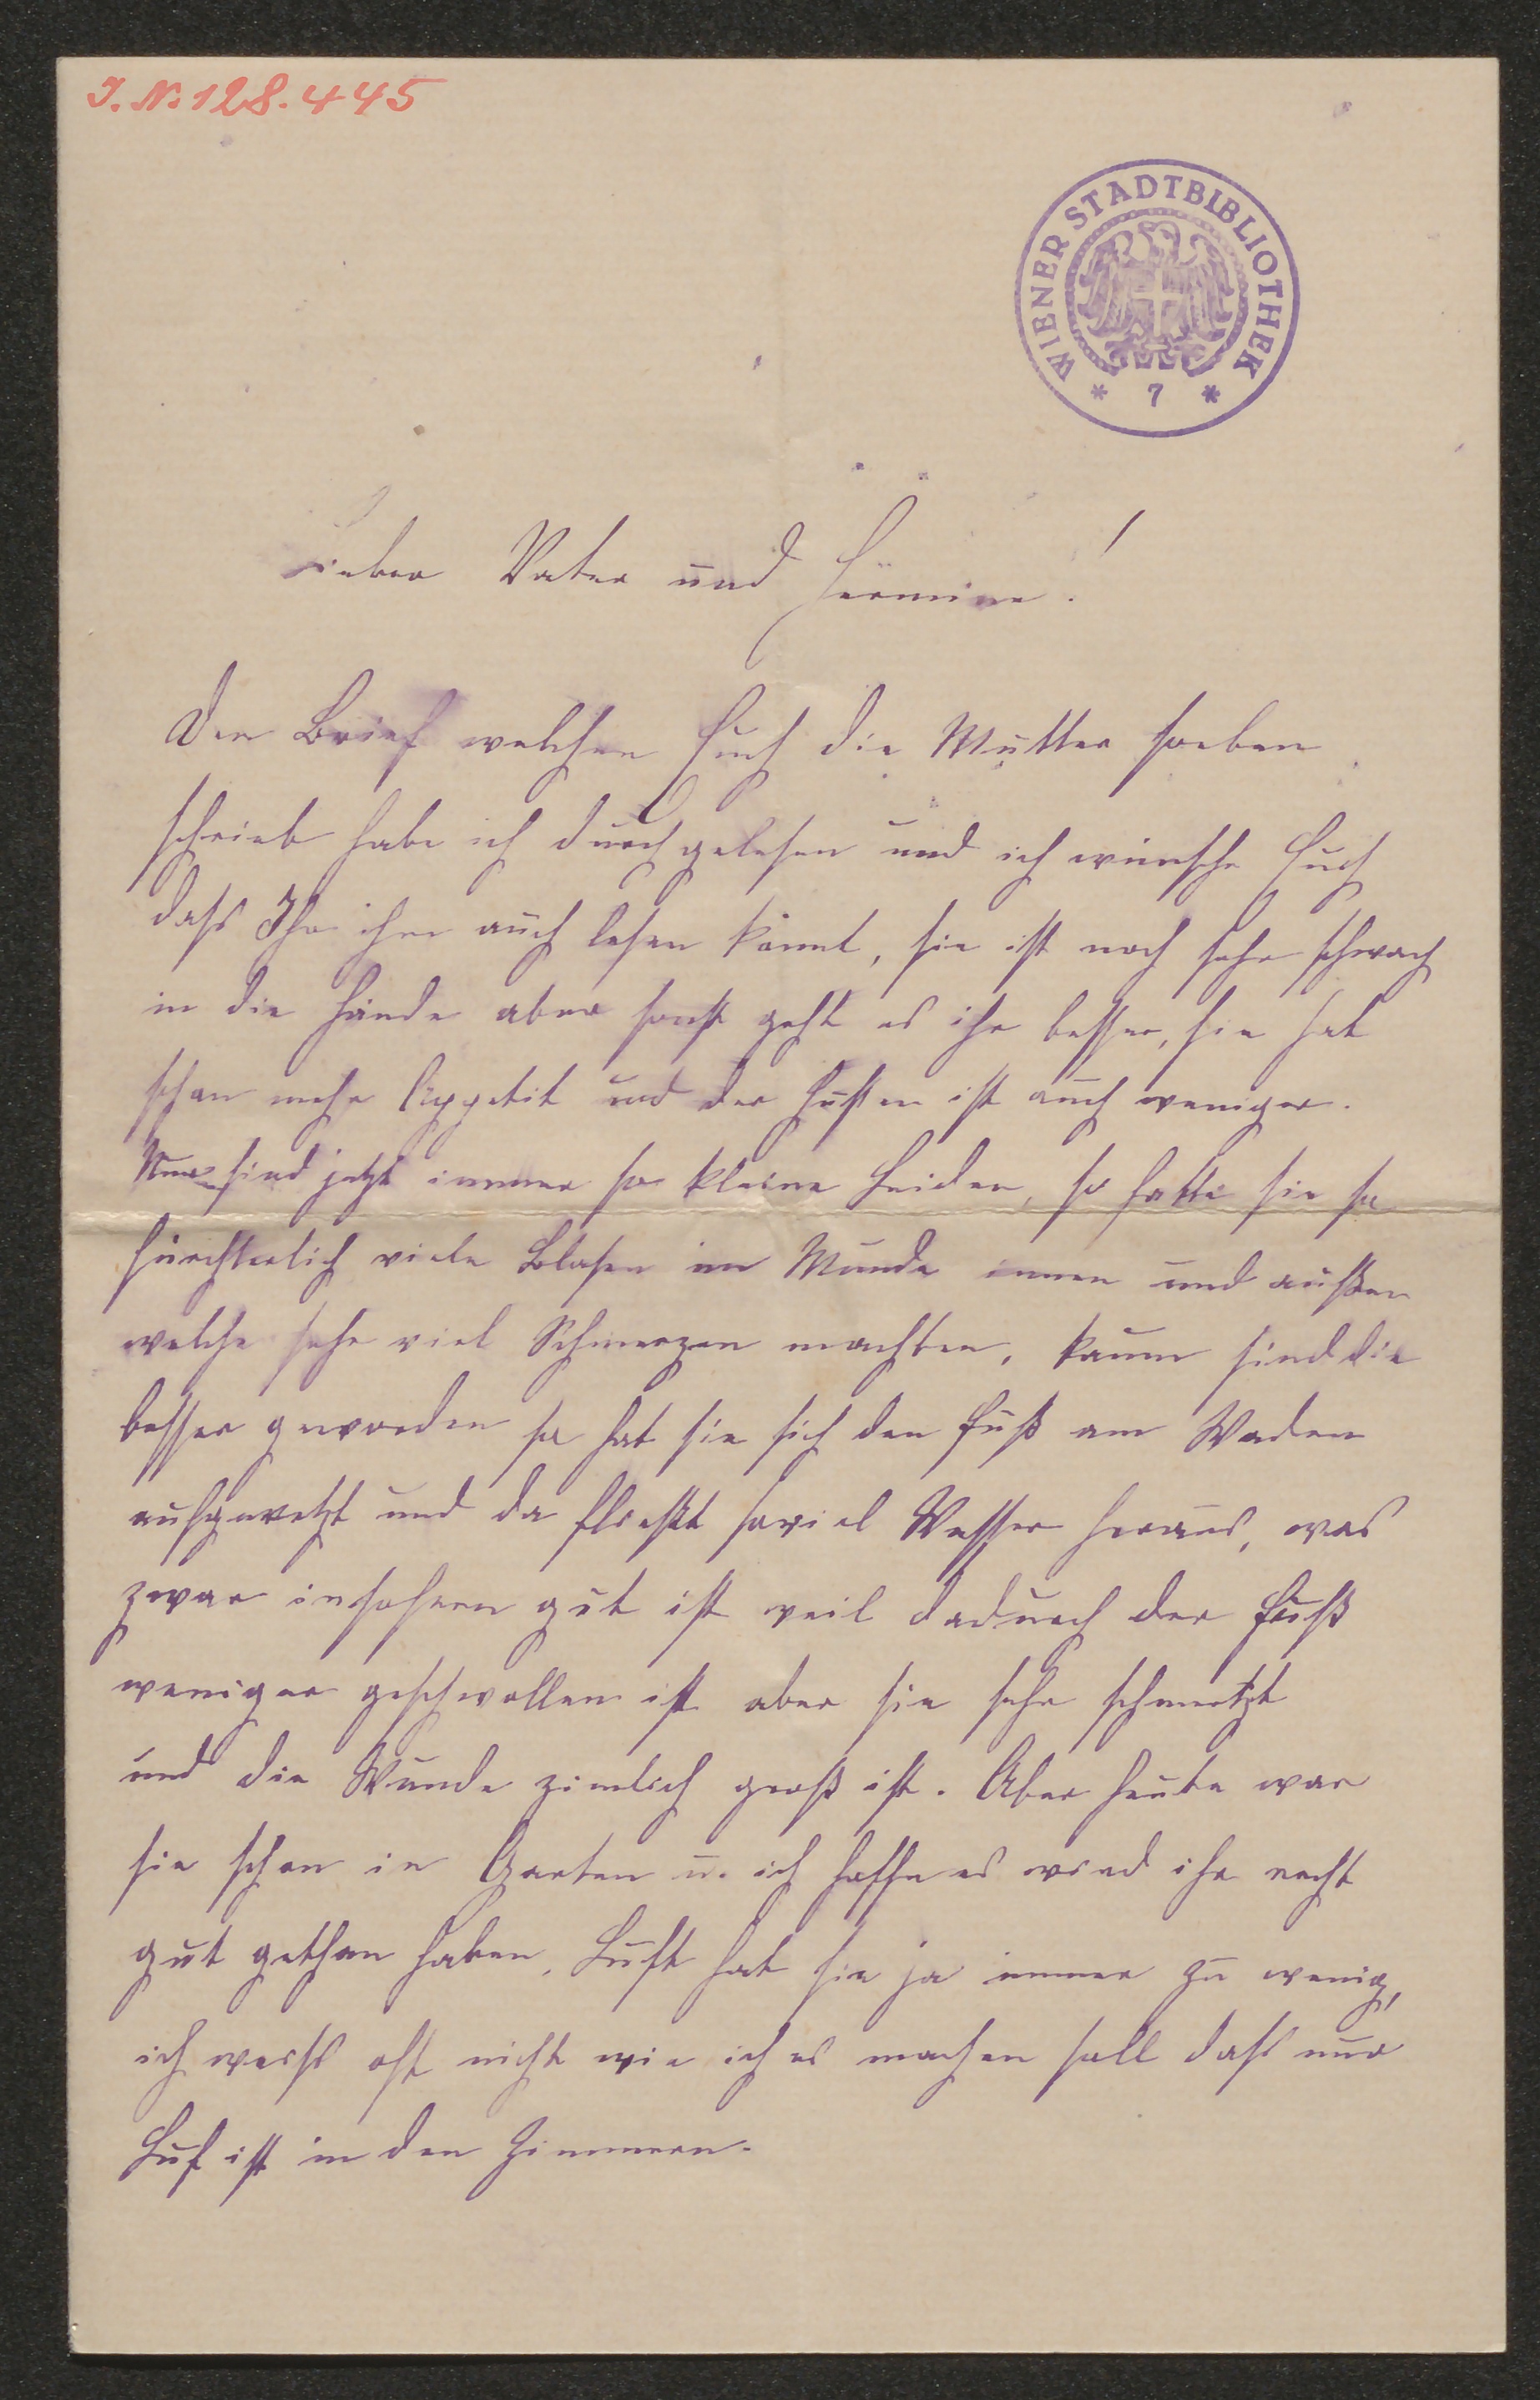 I. N. 128.445
WIENER STADTBIBLIOTHEK
* 7 *
Lieber Vater und Hermine!
Den Brief welchen Euch die Mutter soeben
schrieb habe ich durchgelesen und ich wünsche Euch
dass Ihr ihn auch lesen könnt, sie ist noch sehr schwach
in die Hände aber sonst geht es ihr besser, sie hat
schon mehr Appetit und der Husten ist auch weniger.
Nur sind jetzt immer so kleine Leiden, so hatte sie so
fürchterlich viele Blasen im Munde innen und außen
welche sehr viel Schmerzen machten, kaum sind die
besser geworden so hat sie sich den Fuß am Waden
aufgewetzt und da fließt soviel Wasser heraus, was
zwar insofern gut ist weil dadurch der Fuß
weniger geschwollen ist aber sie sehr schmertzt
und die Wunde zimlich groß ist. Aber heute war
sie schon in Garten u. ich hoffe es wird ihr recht
gut gethan haben, Luft hat sie ja immer zu wenig,
ich weiss oft nicht wie ich es machen soll dass nur
Luf ist in den Zimmern.